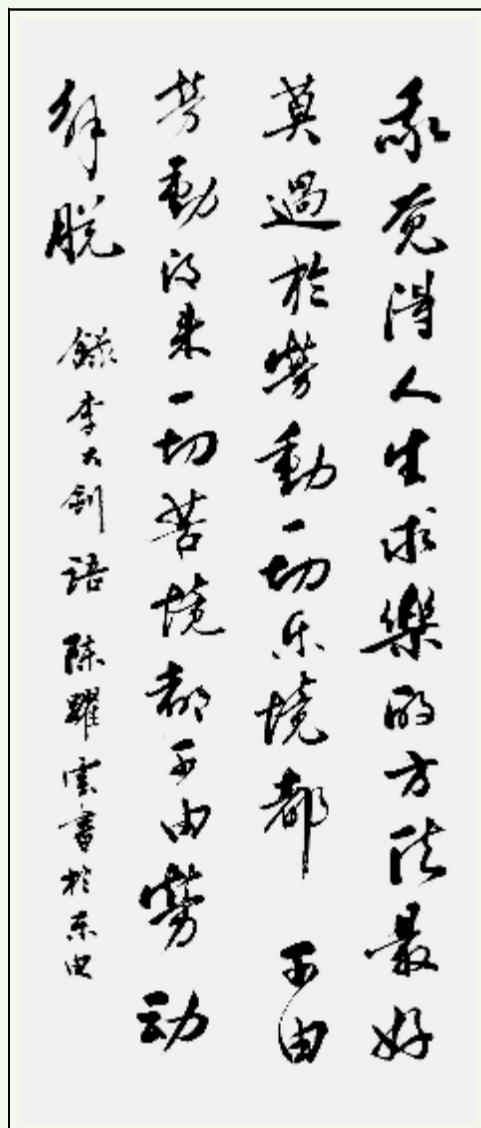 我觉得人生求樂的方法最好
莫過於勞動一切乐境都可由
劳動得来一切苦境都可由勞动
解脱
錄李大釗語 陈耀雲書於东